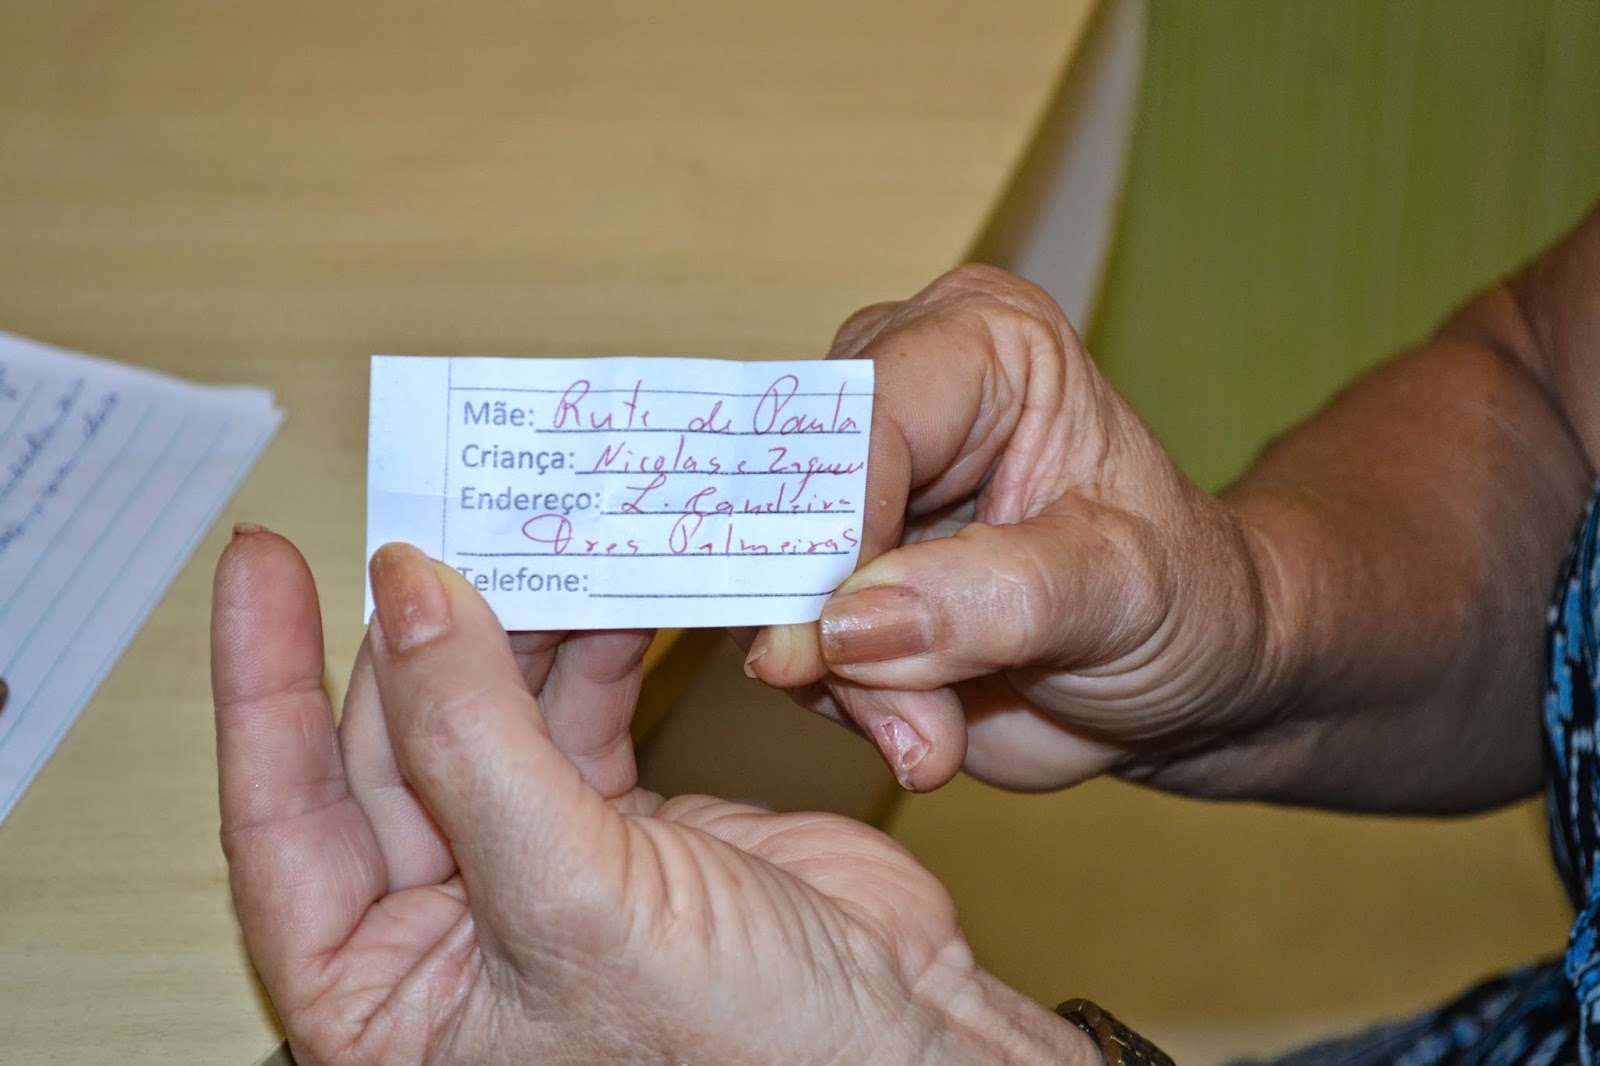 Mãe: Rute de Paula
Criança: Nicolas e Zaqueu
Endereço: L. Candeira
Tres Palmeiras
Telefone: